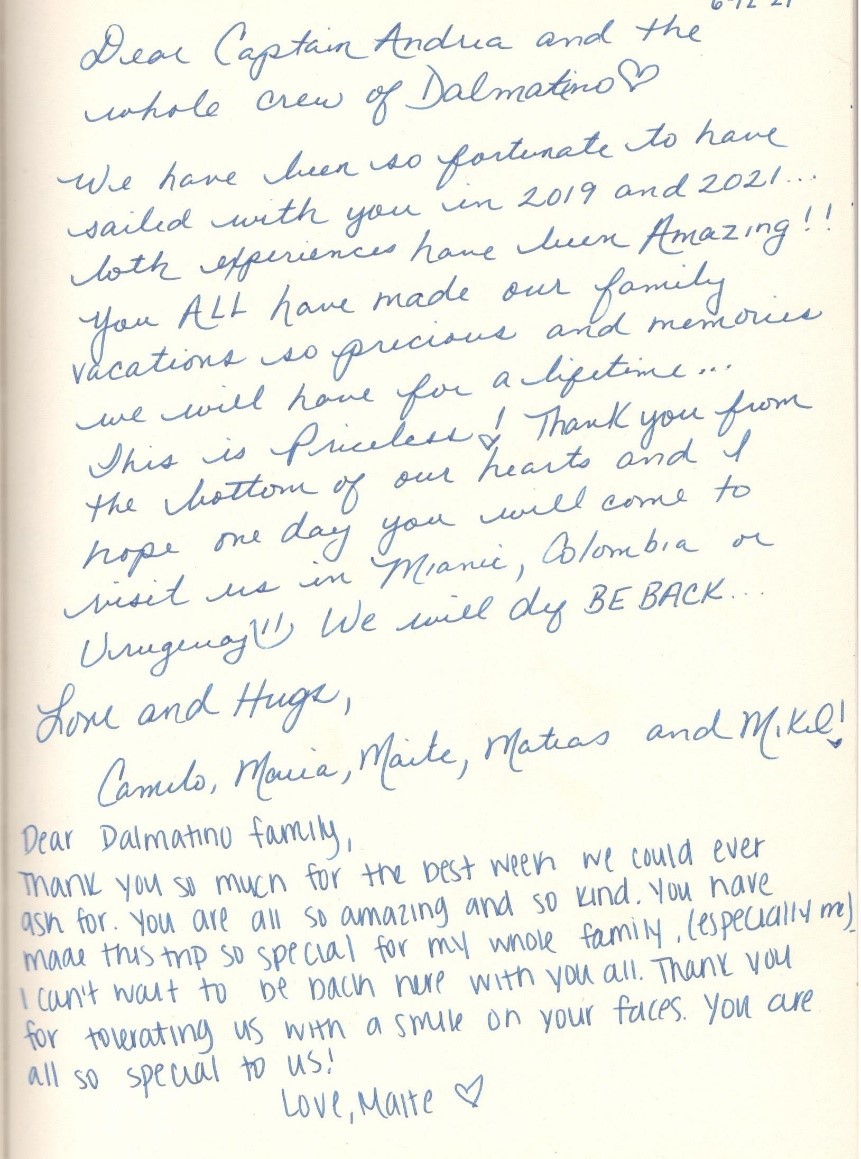 Dear Captain Andrea and the
whole crew of Dalmatino♡
We have been so fortunate to have
sailed with you in 2019 and 2021...
both experiences have been Amazing!!
You ALL have made our family
vacations so precious and memories
we will have for a lifetime...
This is Priceless! Thank you from
the bottom of our hearts and I
hope one day you will come to
visit us in Miami, Colombia or
Uruguay!! We will BE BACK...
Love and Hugs,
Camilo, Maria, Maite, Matias and Mikel!
Dear Dalmatino family,
Thank you so much for the best week we could ever
ask for. You are all so amazing and so kind. You have
made this trip so special for my whole family. (especially me)
I can't wait to be back here with you all. Thank you
for tolerating us with a smile on your faces. You are
all so special to us!
Love, Maite ♡